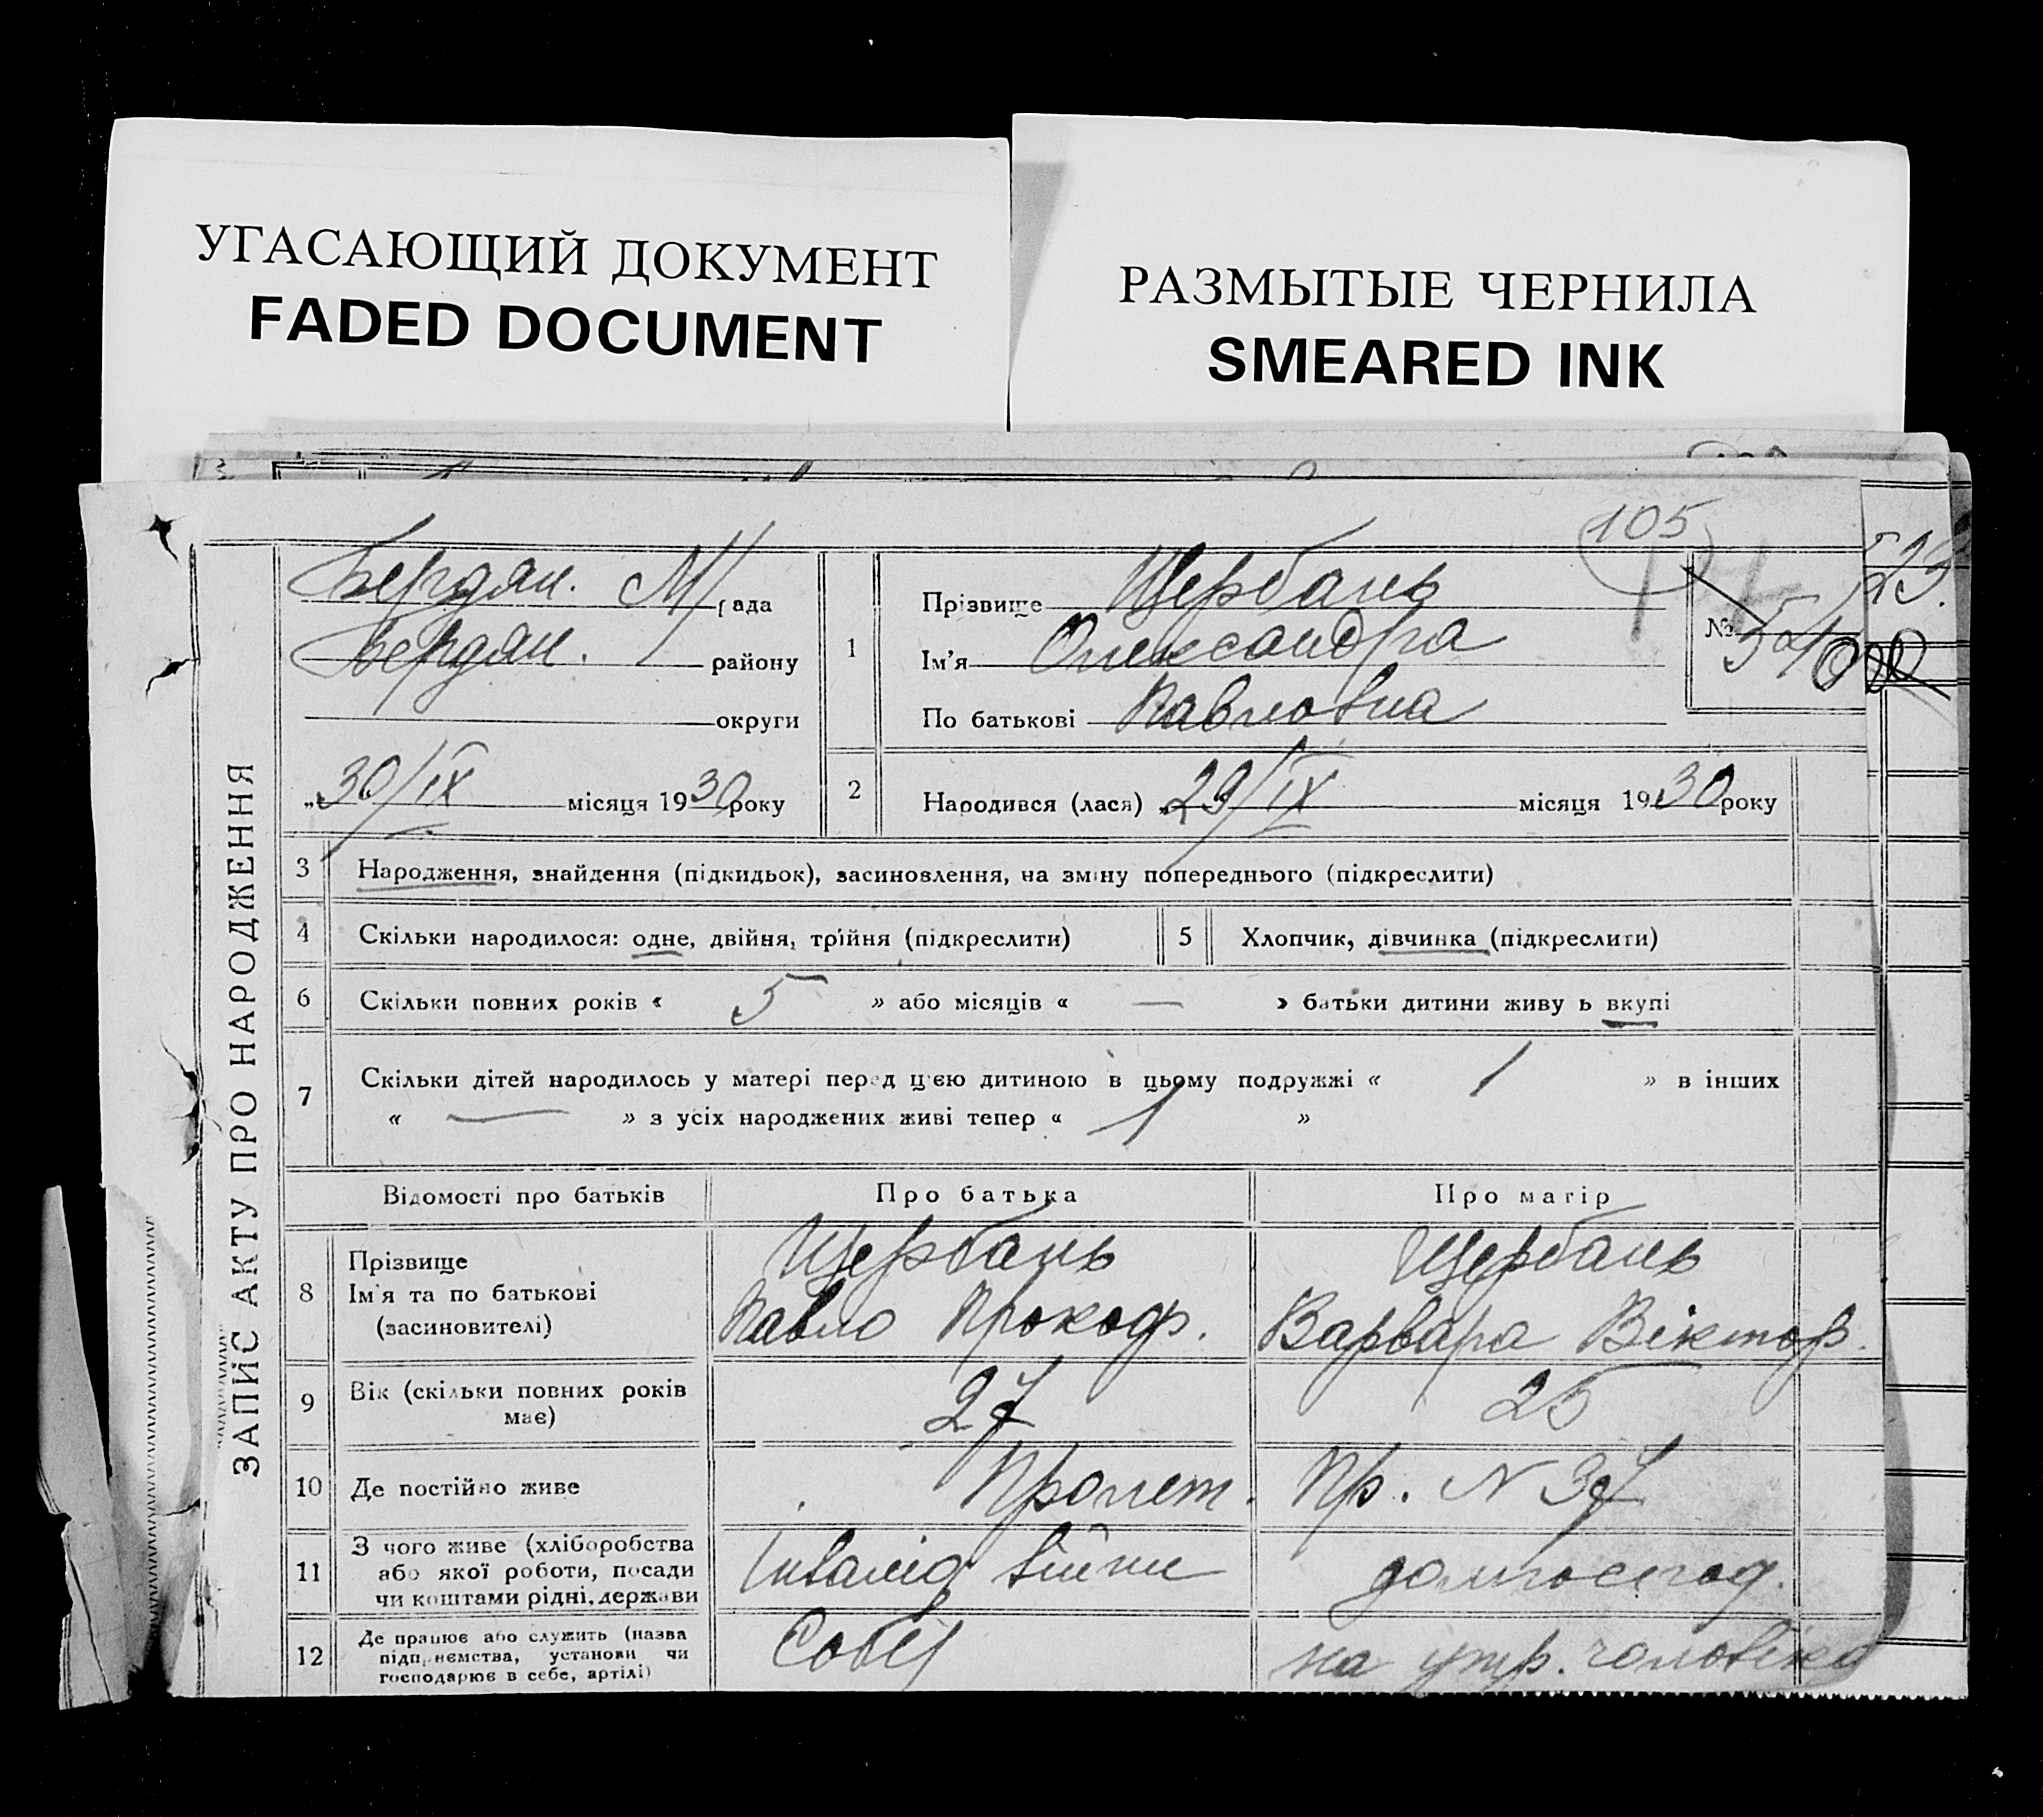 УГАСАЮЩИЙ ДОКУМЕНТ
FADED DOCUMENT
РАЗМЫТЫЕ ЧЕРНИЛА
SMEARED INK
105
ЗАПИС АКТУ ПРО НАРОДЖЕННЯ
Бердян. М/рада
Бердян. району
округи
„30/IX місяця 1930 року
1 Прізвище Щербань
Ім'я Олександра
По батькові Павловна
№ 54
2 Народився (лася) „29/IX місяця 1930 року
3 Народження, знайдення (підкидьок), засиновлення, на зміну попереднього (підкреслити)
4 Скільки народилося: одне, двійня, трійня (підкреслити)
5 Хлопчик, дівчинка (підкреслити)
6 Скільки повних років « 5 » або місяців « — » батьки дитини живу ь вкупі
7 Скільки дітей народилось у матері перед цією дитиною в цьому подружжі « 1 » в інших
« — » з усіх народжених живі тепер « 1 »
Відомості про батьків Про батька Про матір
8 Прізвище Щербань Щербань
Ім'я та по батькові Павло Прокоф. Варвара Віктор.
(засиновителі)
9 Вік (скільки повних років має) 27 25
10 Де постійно живе Пролет. Пр. N 37
11 З чого живе (хліборобства
або якої роботи, посади
чи коштами рідні, держави
Інвалід війни домгоспод.
12 Де працює або служить (назва
підприємства, установи чи
господарює в себе, артілі)
Собез на утр. чоловіка